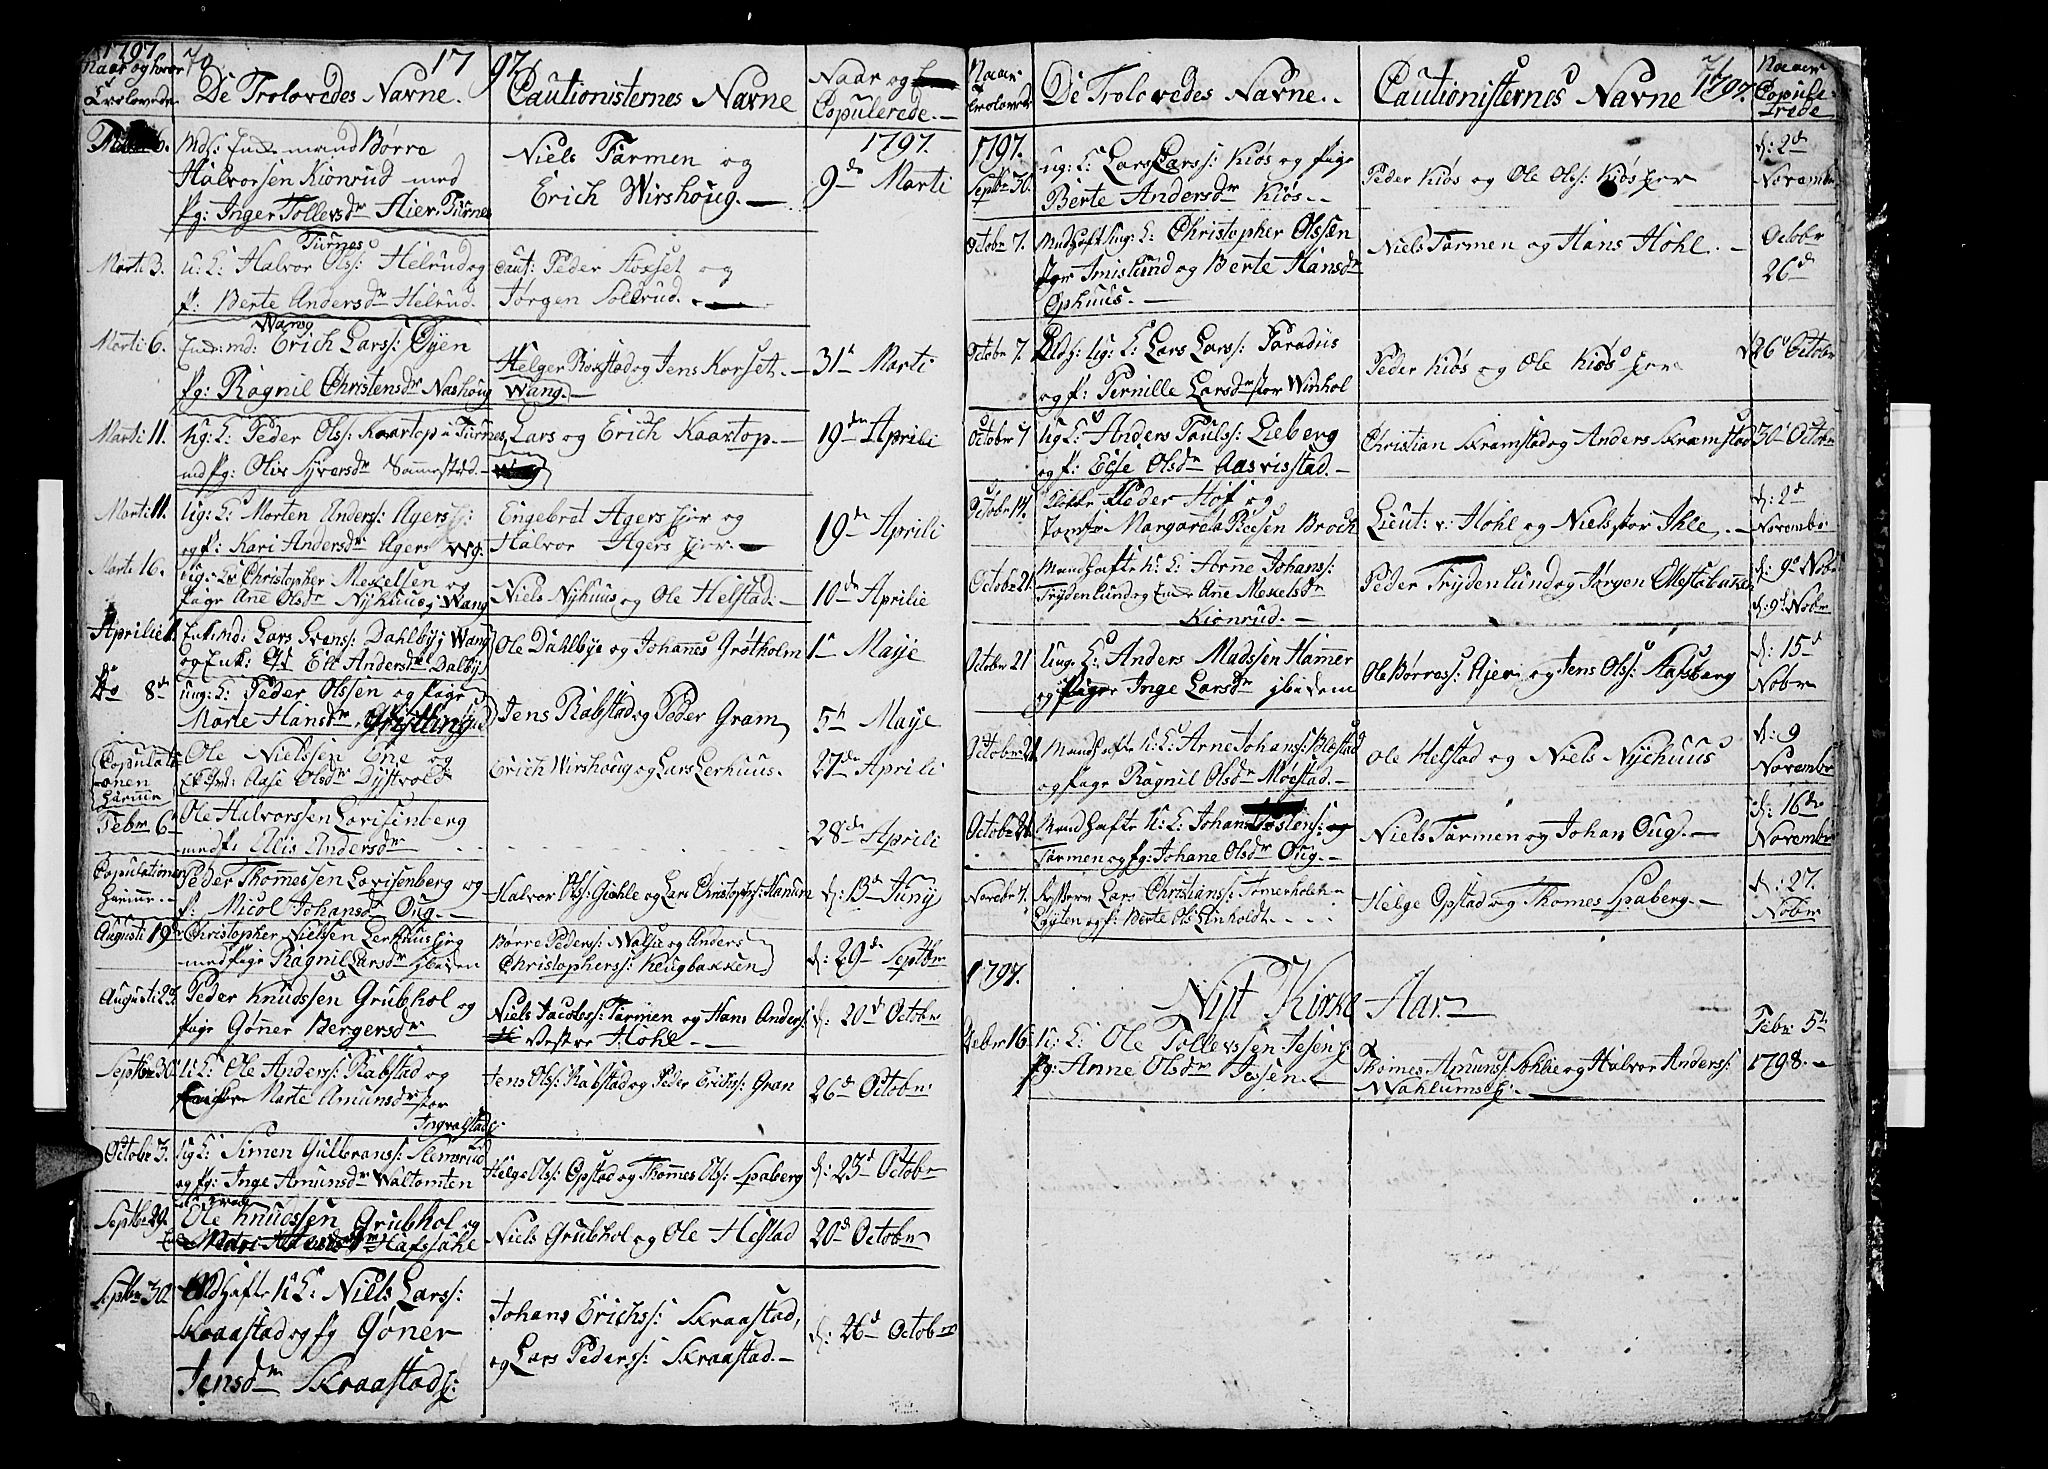 1797. 70. 1797.
Naar og hvor Trolovede
De Trolovedes Navne.
Cautionisternes Navne
Naar og Copulerede.
6.
Mdh: Enkemand Børre
Halvorsen Kionrud med
Pg: Inger Tollevsdr Aier, Furnes
Niels Farmen og
Erich Wirshoug.
1797.
9de Marti
Marti 3.
Furnes
u: K: Halvor Olss: Helrud og
P: Berte Andersdr Helrud.
Caut: Peder Stoxset og
Jørgen Sollrud.
Marti 6.
Wang
Enke: md: Erich Larss: Øyen
Pg: Ragnil Christensdr Nashoug
Helger Rokstad og Jens Korset.
Wang.
31te Marti
Marti 11.
Ug: K: Peder Olss: Kaartop i Furnes
md Pg: Olive Syversdr Sammestad.
Lars og Erich Kaartop.
19de Aprili
Marti 11.
Ug: K: Morten Anderss: Agers
og P: Kari Andersdr Agers Wg:
Engebret Agers Eier og
Halvor Agers Eier.
19de Aprili
Marti 16.
ug: K: Christopher Mekelsen og
Pige Ane Olsdr Nyhuus, Wang
Niels Nyhuus og Ole Helstad.
10de Aprilie
Aprilie 1.
Enk: md: Lars Svenss: Dahlbye Wang
og Enk: Eli Andersdr Dalbye
Ole Dahlbye og Johannes Grøtholm
1te Maye
Do 8de
ung: K: Peder Olssen og Pige
Marte Hansdr
Jens Rabstad og Peder Gram
5te Maye
Copulationen
Hamer
Ole Nielssen Ene og
Aase Olsdr Dystvold
Erich Wirshoug og Lars Lerhuus.
27de Aprili
Febr 6te
Ole Halvorssen Lovisenberg
med P: Alis Andersdr
28de Aprili
Copulationen
Hamer.
Peder Thomessen Lovisenberg og
P: Nicol Johansdr Oug.
Halvor Olss: Giøhle og Lars Christophs: Hanum
d: 13de Juny
Augusti 19de
Christopher Nielsen Lerhus Eier
med Pige Ragnil Larsdr ibidem
Børre Pederss: Nalsie og Anders
Christopherss: Klugbakken
d: 29de Septbr
Augusti 23.
Peder Knudssen Grubhol og
Pige Gøner Bergersdr
Niels Jacobss: Farmen og Hans Anderss:
Vestre Hohl.
d: 20de Octobr
Septbr 30.
U: K: Ole Anderss: Rabstad og
Marte Amunsdr stor
Ingvalstad
Jens Olss: Rabstad og Peder Erichss: Gran
26de Octobr
Octobr 3.
Ug K: Simen Gulbranss: Slemsrud
og Pg: Inge Amunsdr Waltomten
Helge Olss: Opstad og Thomes Olss: Spaberg
d: 23de Octobr
Septbr 29.
Ole Knudssen Grubhol og
Niels Grubhol og Ole Hestad
20de Octobr
Septbr 30.
Mdhafte U: K: Niels Larss:
Kraastad og Pg Gøner
Jensdr Kraastad
Johans Erichss: Kraastad,
og Lars Pederss: Kraastad.
d: 26de Octobr
Naar Trolovede
De Trolovedes Navne.
Cautionisternes Navne 1797. 71
Naar Copulerede
1797.
Septbr 30.
ug: K: Lars Larss: Kiøs og Pige
Berte Andersdr Kiøs.
Peder Kiøs og Ole Olss: Kiøs Eier
d: 2de
Novembr
Octobr 7.
Mandhaft ung: K: Christopher Olssen
Imislund og Berte Hansdr
Ophuus.
Niels Farmen og Hans Hohl.
Octobr
26de
Octobr 7.
Mdh: Ug: K: Lars Larss: Paradiis
og P: Pernille Larsdr stor Wirshol
Peder Kiøs og Ole Kiøs Eier
26de Octobr
Octobr 7
Ug K: Anders Paulss: Lieberg
og P: Else Olsdr Aasvisstad.
Christian Kramstad og Anders Kramstad
30te Octobr
Octobr 14.
Peder Hof og
Jomfr Margareta Broch
Lieut: v: Hohl og Niels stor Ihle.
d: 2de
Novembr
Octobr 21.
Mandhafte u: K: Arne Johanss:
Frydenlund og Enke Ane Mekelsdr
Kionrud.
Peder Frydenlund og Jørgen Mestabakke
d: 9de Nobr
d: 9de Nobr
Octobr 21
Ung: K: Anders Madssen Hamer
og Pige Inge Larsdr ibidem
Ole Børress: Ajer og Jens Olss: Aasberg
d: 15de
Nobr
Octobr 21.
Mandhafte U: K: Arne Johanss: Blæstad
og Pige Ragnil Olsdr Møestad.
Ole Helstad og Niels Nyhuus
d: 9
Novembr
Octobr 21.
Mandhafte U: K: Johan
Farmen og Pg: Johane Olsdr Oug.
Niels Farmen og Johan Oug.
d: 16de
Novembr
Novebr 4.
Lars Christianss:
og P: Berte Ols Linholdt
Helge Opstad og Thomes Spaberg.
d: 27.
Nobr
1797.
Nyt Kirke-Aar.
Decbr 16.
U: K: Ole Tollevssen Jesen
Pg: Anne Olsdr Jessen.
Thomes Amunss: Sohlie og Halvor Anderss:
Wahlums
Febr 5te
1798.